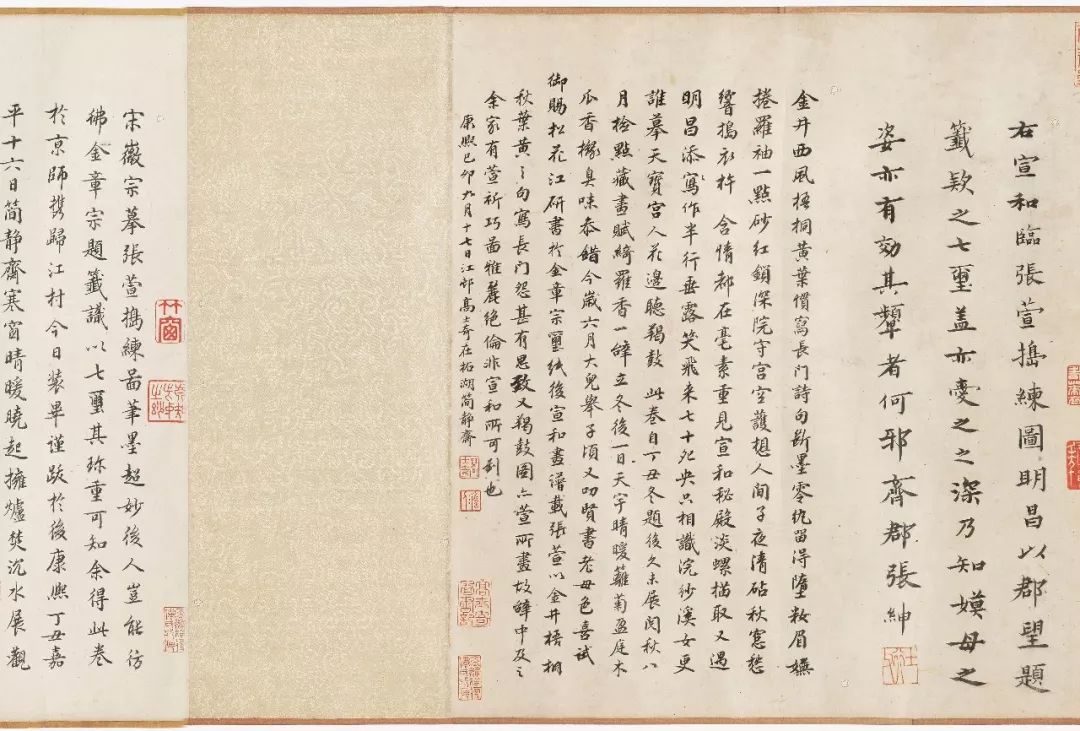 右宣和臨張萱搗練圖明昌以郡望題
籤欵之七璽盖亦愛之之深乃知嫫母之
姿亦有効其顰者何邪齊郡張紳
金井西風梧桐黄葉慣寫長門詩句斷墨零紈留得墮粧眉嫵
捲羅袖一點砂紅鎖深院守宮空護想人間子夜清砧秋窓愁
響搗衣杵 含情都在毫素重見宣和秘殿淡螺描取又遇
明昌添寫作半行垂露笑飛来七十死央只相識浣紗溪女更
誰摹天寶宮人花邊聴羯鼓 此卷自丁丑冬題後久未展閲秋八
月檢點藏畫賦綺羅香一闋立冬後一日天宇晴暖蘿菊盈庭木
瓜香橼臭味叅錯今歲六月大兒舉子頃又叨賢書老母色喜試
御賜松花江研書於金章宗璽紙後宣和畫譜載張萱以金井梧桐
秋葉黄之句寫長門怨甚有思致又羯鼓圖亦萱所畫故辭中及之
余家有萱祈巧圖雅麗絶倫非宣和所可到也
康熙己卯九月十七日江邨高士奇在柘湖簡靜齋
宋徽宗摹張萱搗練啚筆墨超妙後人豈能彷
彿金章宗題籤識以七璽其珎重可知余得此卷
於京師携歸江村今日装畢謹跋於後康熙丁丑嘉
平十六日简静齋寒窗晴暖曉起擁爐焚沉水展觀
竹窗